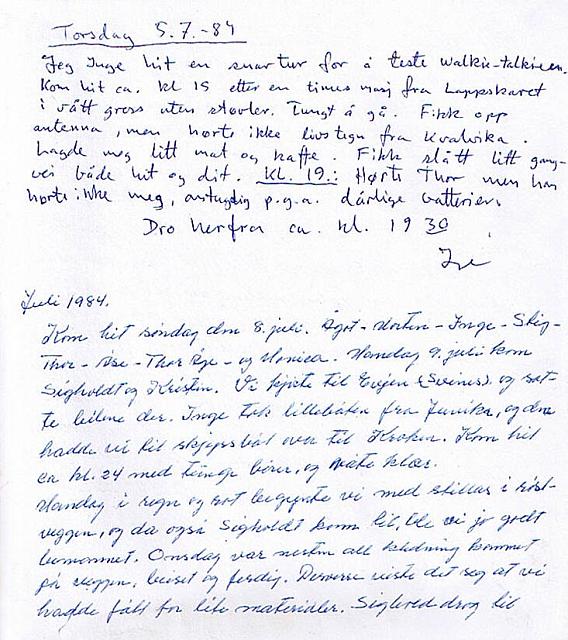 Torsdag 5.7.-84
Jeg Inge hit en snartur for å teste walkie-talkieen.
Kom hit ca. kl 15 etter en times marsj fra Lappskaret
i vått gress uten støvler. Tungt å gå. Fikk opp
antenna, men hørte ikke livstegn fra Kvalvika.
Lagde meg litt mat og kaffe. Fikk slått litt gang-
vei både hit og dit. Kl. 19: Hørte Thor men han
hørte ikke meg, antagelig p.g.a. dårlige batterier.
Dro herfra ca. kl. 19 30
Inge
Juli 1984.
Kom hit søndag den 8. juli. Ågot - Morten - Inge - Stig-
Thor - Åse - Thor Åge - og Monica. Mandag 9. juli kom
Sigholdt og Kristin. Vi kjørte til og sat-
te bilene der. Inge tok lillebåten fra og den
hadde vi til skyssbåt over til Kroken. Kom hit
ca kl. 24 med tunge bører, og våte klær.
Mandag i regn og rot begynte vi med stillas i
veggen, og da også Sigholdt kom til, ble vi jo godt
bemannet. Onsdag var nesten all kledning kommet
på veggen, beiset og ferdig. Dessverre viste det seg at vi
hadde fått for lite materialer. drog til